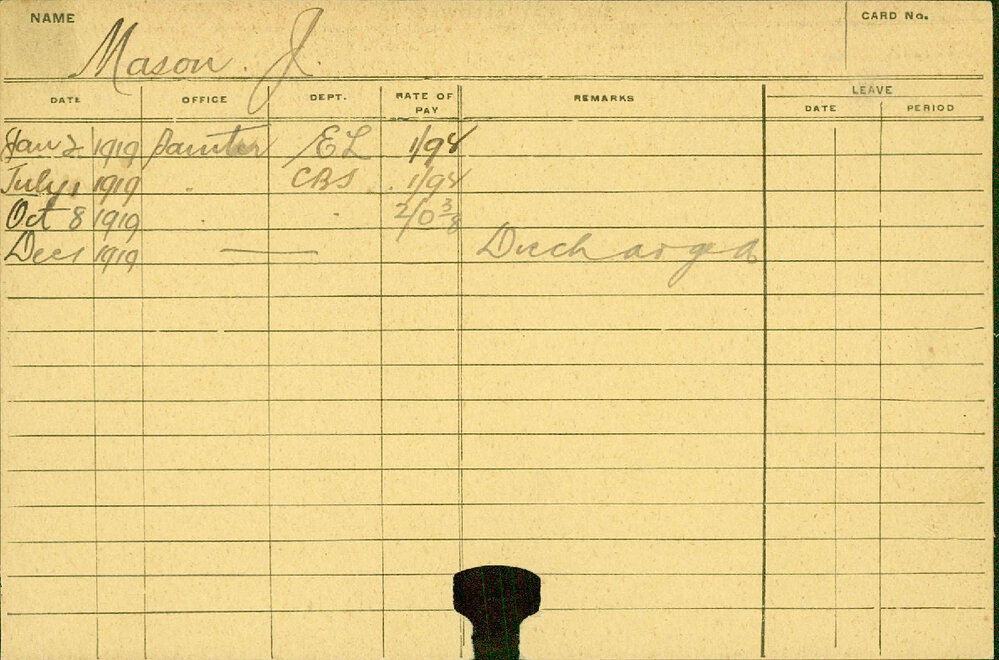 NAME
CARD No.
Mason J.
DATE OFFICE DEPT. RATE OF PAY REMARKS LEAVE
DATE PERIOD
Jan 2 1919 Painter EL
July 1 1919 " CBS
Oct 8 1919 " " 2/0 3/8
Dec 1 1919 — Discharged